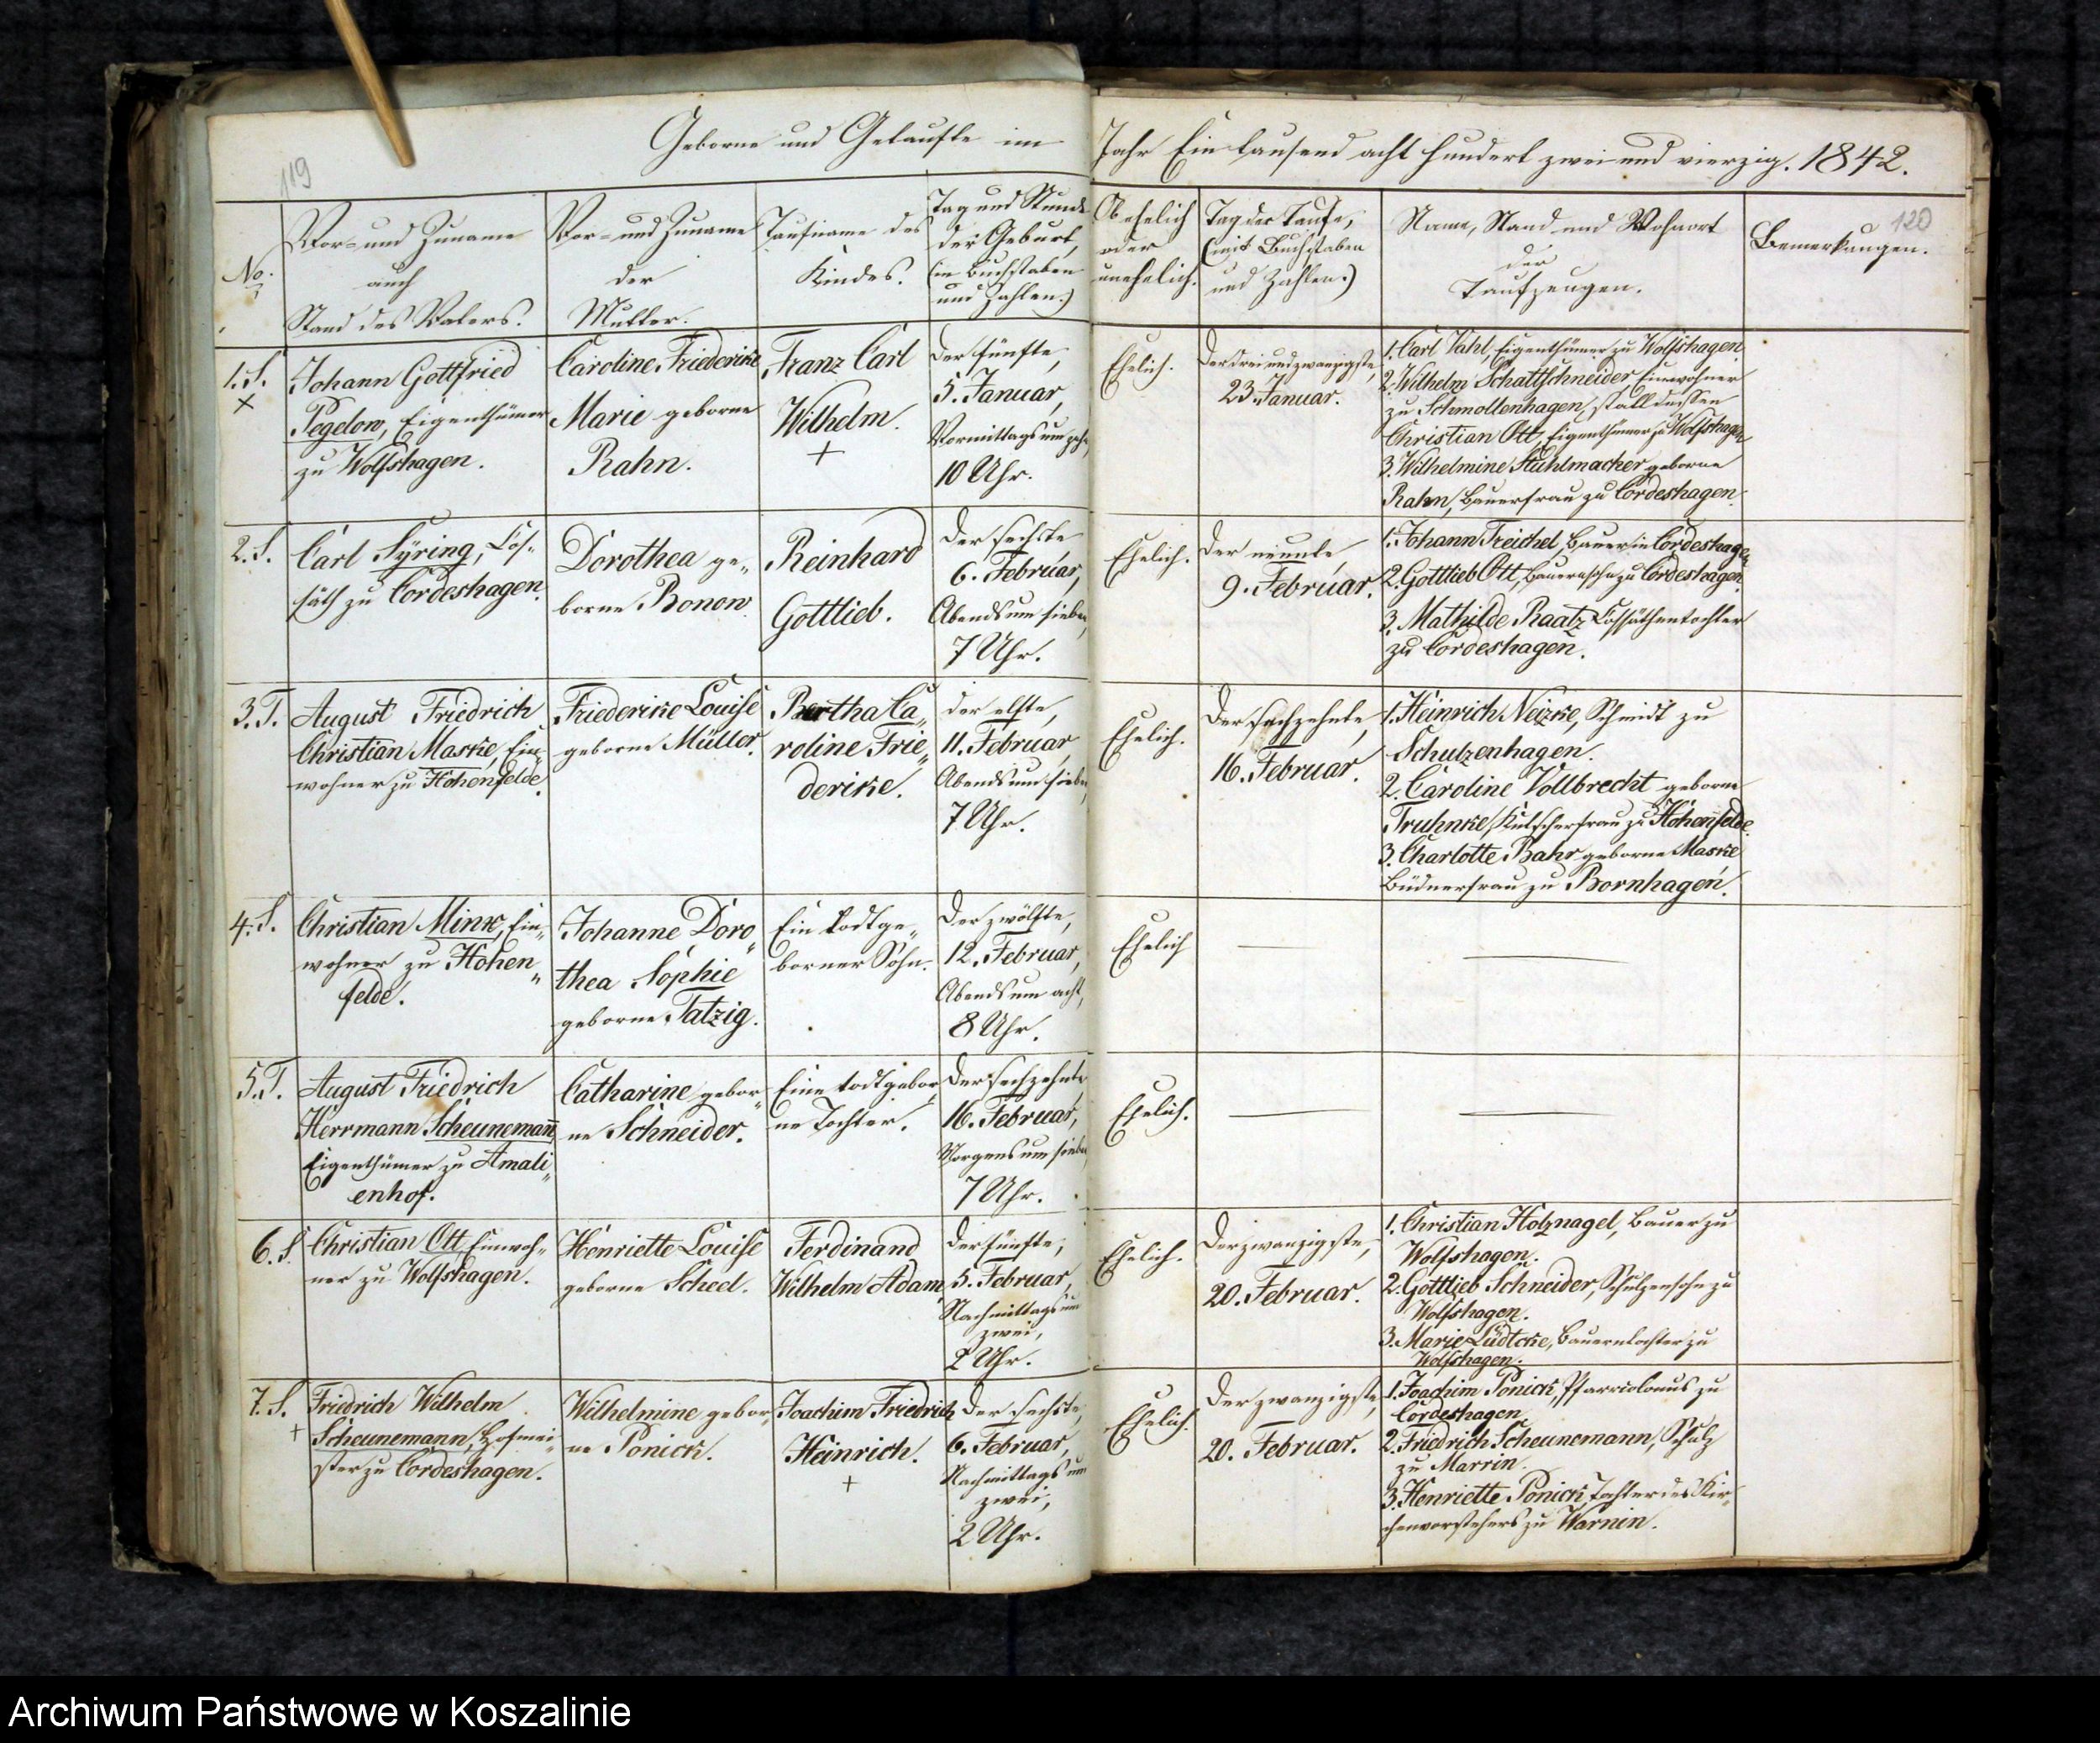 Geborne und Getaufte im Jahr Ein tausend acht hundert zwei und vierzig. 1842.
119
120
No.
Vor- und Zuname
auch
Stand des Vaters.
Vor- und Zuname
der
Mutter.
Taufname des
Kindes.
Tag und Stunde
der Geburt,
(in Buchstaben
und Zahlen.)
Ob ehelich
oder
unehelich.
Tag der Taufe,
(mit Buchstaben
und Zahlen.)
Name, Stand und Wohnort
der
Taufzeugen.
Bemerkungen.
1. S.
×
Johann Gottfried
Pegelow, Eigenthümer
zu Wolfshagen.
Caroline Friederike
Marie geborne
Rahn.
Franz Carl
Wilhelm.
+
Der fünfte,
5. Januar,
Vormittags um zehn,
10 Uhr.
Ehelich.
Der drei und zwanzigste,
23. Januar.
1. Carl Vahl, Eigenthümer zu Wolfshagen.
2. Wilhelm Schattschneider, Einwohner
zu Schmollenhagen, statt dessen
Christian Ott, Eigenthümer zu Wolfshagen
3. Wilhelmine Stuhlmacher geborne
Rahn, Bauerfrau zu Cordeshagen.
2. S.
Carl Syring, Cos-
säth zu Cordeshagen.
Dorothea ge-
borne Bonow
Reinhard
Gottlieb.
Der sechste
6. Februar,
Abends um sieben,
7 Uhr.
Ehelich.
Der neunte
9. Februar.
1. Johann Treichel, Bauer in Cordeshagen
2. Gottlieb Ott, Bauernsohn zu Cordeshagen.
3. Mathilde Raatz Cossäthentochter
zu Cordeshagen.
3. T.
August Friedrich
Christian Maske, Ein-
wohner zu Hohenfelde.
Friederike Louise
geborne Müller.
Bertha Ca-
roline Frie-
derike.
der elfte,
11. Februar,
Abends um sieben,
7 Uhr.
Ehelich.
Der sechzehnte,
16. Februar.
1. Heinrich Neizke, Schmidt zu
Schulzenhagen.
2. Caroline Vollbrecht geborne
Truhnke, Kutscherfrau zu Hohenfelde.
3. Charlotte Bahr geborne Maske
Büdnerfrau zu Bornhagen.
4. S.
Christian Mink, Ein-
wohner zu Hohen-
felde.
Johanne Doro-
thea Sophie
geborne Tatzig.
Ein todtge-
borner Sohn.
Der zwölfte,
12. Februar,
Abends um acht,
8 Uhr.
Ehelich
5. T.
August Friedrich
Herrmann Scheunemann
Eigenthümer zu Amali-
enhof.
Catharine gebor-
ne Schneider.
Eine todtgebor-
ne Tochter.
Der sechzehnte
16. Februar,
Morgens um sieben,
7 Uhr.
Ehelich.
6. S.
Christian Ott, Einwoh-
ner zu Wolfshagen.
Henriette Louise
geborne Scheel.
Ferdinand
Wilhelm Adam
Der fünfte,
5. Februar,
Nachmittags um
zwei,
2 Uhr.
Ehelich.
Der zwanzigste,
20. Februar.
1. Christian Holznagel, Bauer zu
Wolfshagen.
2. Gottlieb Schneider, Schulzensohn zu
Wolfshagen.
3. Marie Lüdtcke, Bauerntochter zu
Wolfshagen.
7. S.
+
Friedrich Wilhelm
Scheunemann, Hofmei-
ster zu Cordeshagen.
Wilhelmine gebor-
ne Ponick.
Joachim Friedrich
Heinrich.
+
Der sechste,
6. Februar,
Nachmittags um
zwei,
2 Uhr.
Ehelich.
Der zwanzigste,
20. Februar.
1. Joachim Ponick, Pfarrcolonus zu
Cordeshagen
2. Friedrich Scheunemann, Schulz
zu Marrin.
3. Henriette Ponick, Tochter des Kir-
chenvorstehers zu Warnin.
Archiwum Państwowe w Koszalinie